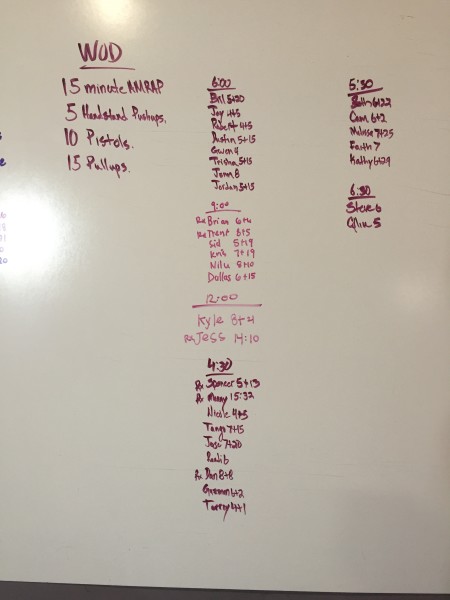 WOD
15 minute AMRAP
5 Handstand Pushups.
10 Pistols.
15 Pullups.
6:00
Bill 5+20
Jay 4+5
Robert 4+5
Dustin 5+15
Gwen 4
Trisha 5+15
Jenn 8
Jordan 5+15
9:00
Rx Brian 6+6
Rx Trent 8+5
Sid 5+19
Kris 7+19
Nilu 8+10
Dallas 6+15
12:00
Kyle 8+4
Rx Jess 14:10
4:30
Rx Spencer 5+13
Rx Manny 15:32
Nicole 4+5
Tango 7+15
Jose 7+20
6
Rx Dan 8+8
6+2
Torrey 4+1
5:30
6+22
Cam 6+2
Melissa 7+25
Faith 7
Kathy 6+29
6:30
Steve 6
5